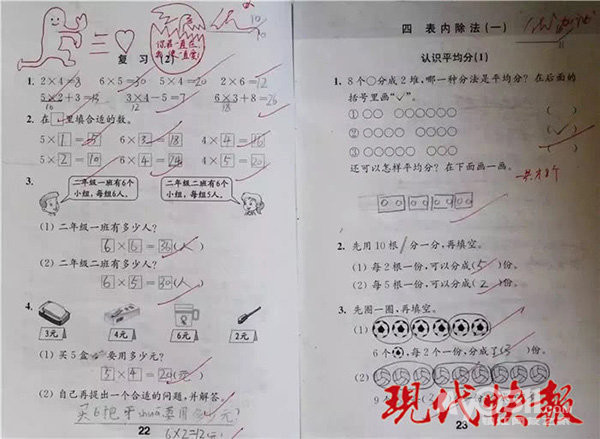 三
你若一直在
我便一直爱
10
复 习 (2)
1. 2×4=8 6×5=30 5×4=20 2×6=12
5×2+3=13 3×4-5=7 6×3+8=26
10 12 18
2. 在□里填合适的数。
5×1=5 6×3=18 4×4=16
5×2=10 6×4=24 4×5=20
3.
二年级一班有6个小组,每组6人。
二年级二班有6个小组,每组5人。
(1) 二年级一班有多少人?
6×6=36(人)
(2) 二年级二班有多少人?
6×5=30(人)
4.
3元 4元 6元 2元
(1) 买5盒 要用多少元?
5×4=20(元)
(2) 自己再提出一个合适的问题,并解答。
买6把牙shuā要用多少元
6×2=12
22
四 表内除法(一)
认识平均分(1)
1. 8个○分成2堆,哪一种分法是平均分?在后面的
括号里画“✓”。
① ○○ ○○○○○○ ( )
② ○○○○ ○○○○ (✓)
③ ○○○○○ ○○○ ( )
还可以怎样平均分?在下面画一画。
2. 先用10根 分一分,再填空。
(1) 每2根一份,可以分成(5)份。
(2) 每5根一份,可以分成(2)份。
3. 先圈一圈,再填空。
(1)
6个 ,每2个一份,分成了(3)份。
(2)
9
23
现代快报